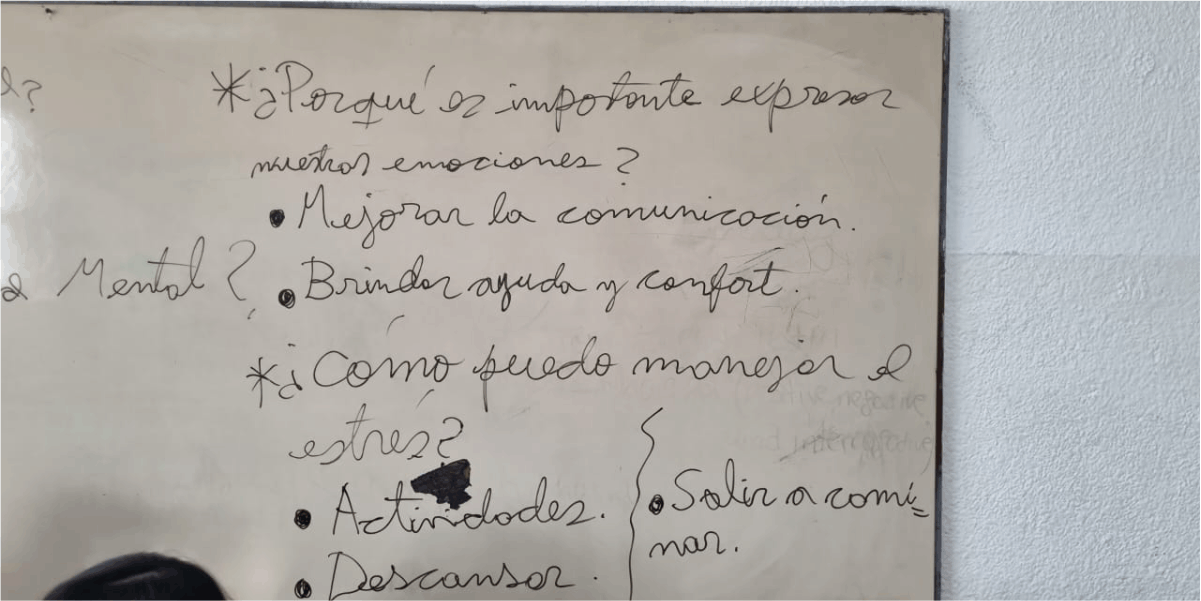 *¿Porqué es importante expresar
nuestras emociones?
• Mejorar la comunicación.
Mental?
• Brindar ayuda y confort.
*¿Cómo puedo manejar el
estrés?
• Actividades.
• Salir a cami=
nar.
• Descansar.